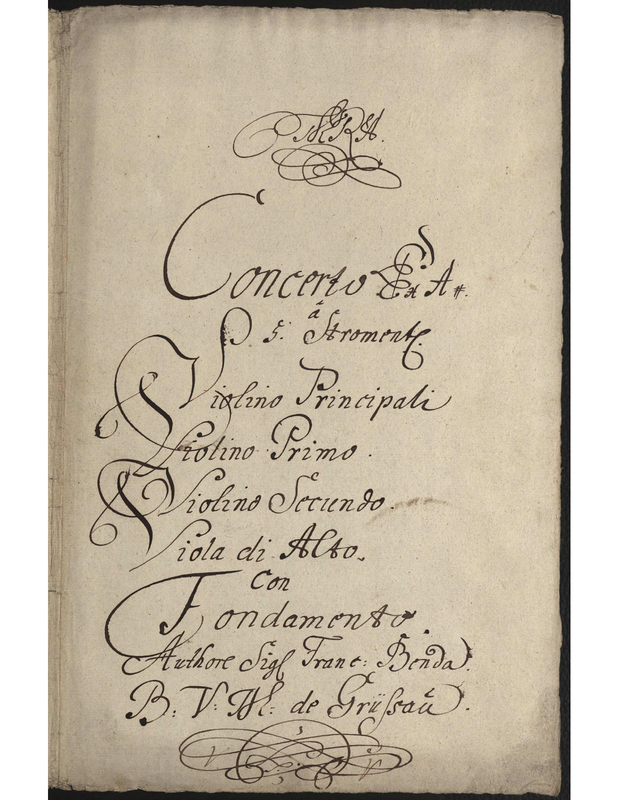 Concerto Ex A#.
à
5. Stromenti.
Violino Principali
Violino Primo.
Violino Secundo.
Viola di Alto.
Con
Fondamento.
Authore Sigl Franc: Benda.
B: V: M: de Grüssau.